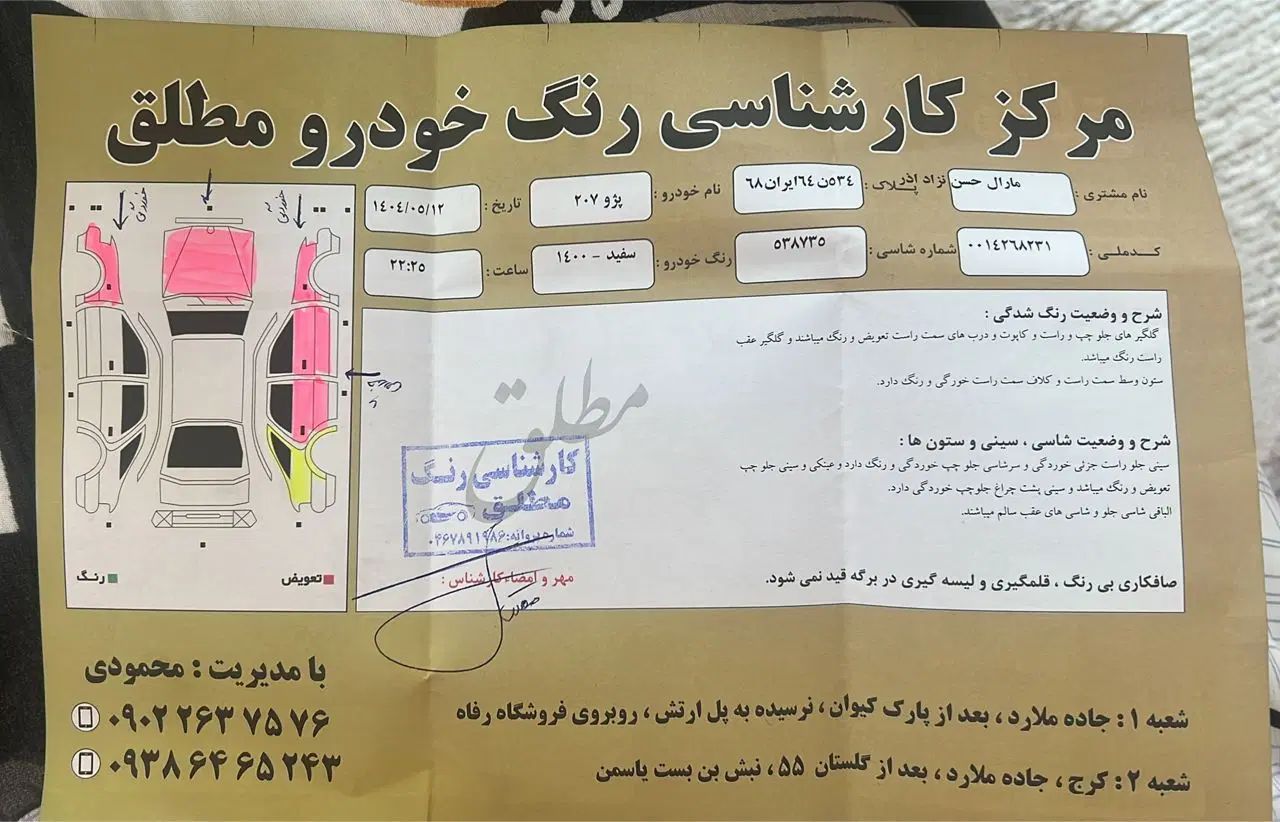 مرکز کارشناسی رنگ خودرو مطلق
نام مشتری : مارال حسن نژاد آذر
پلاک : ۵۳۴ن۶۴ایران۶۸
نام خودرو : پژو ۲۰۷
تاریخ : ۱۴۰۴/۰۵/۱۲
کدملی : ۰۰۱۴۲۶۸۲۳۱
شماره شاسی : ۵۳۸۷۳۵
رنگ خودرو : سفید - ۱۴۰۰
ساعت : ۲۲:۲۵
شرح و وضعیت رنگ شدگی :
گلگیر های جلو چپ و راست و کاپوت و درب های سمت راست تعویض و رنگ میباشند و گلگیر عقب
راست رنگ میباشد.
ستون وسط سمت راست و کلاف سمت راست خورگی و رنگ دارد.
شرح و وضعیت شاسی ، سینی و ستون ها :
سینی جلو راست جزئی خوردگی و سرشاسی جلو چپ خوردگی و رنگ دارد و عینکی و سینی جلو چپ
تعویض و رنگ میباشد و سینی پشت چراغ جلوچپ خوردگی دارد.
الباقی شاسی جلو و شاسی های عقب سالم میباشند.
صافکاری بی رنگ ، قلمگیری و لیسه گیری در برگه قید نمی شود.
مطلق
کارشناسی رنگ
مطلق
شماره پروانه:۰۴۶۷۸۹۱۹۸۶
مهر و امضاء کارشناس :
تعویض
رنگ
با مدیریت : محمودی
۰۹۰۲ ۲۶۳ ۷۵ ۷۶
۰۹۳۸ ۶۴ ۶۵ ۲۴۳
شعبه ۱ : جاده ملارد ، بعد از پارک کیوان ، نرسیده به پل ارتش ، روبروی فروشگاه رفاه
شعبه ۲ : کرج ، جاده ملارد ، بعد از گلستان ۵۵ ، نبش بن بست یاسمن